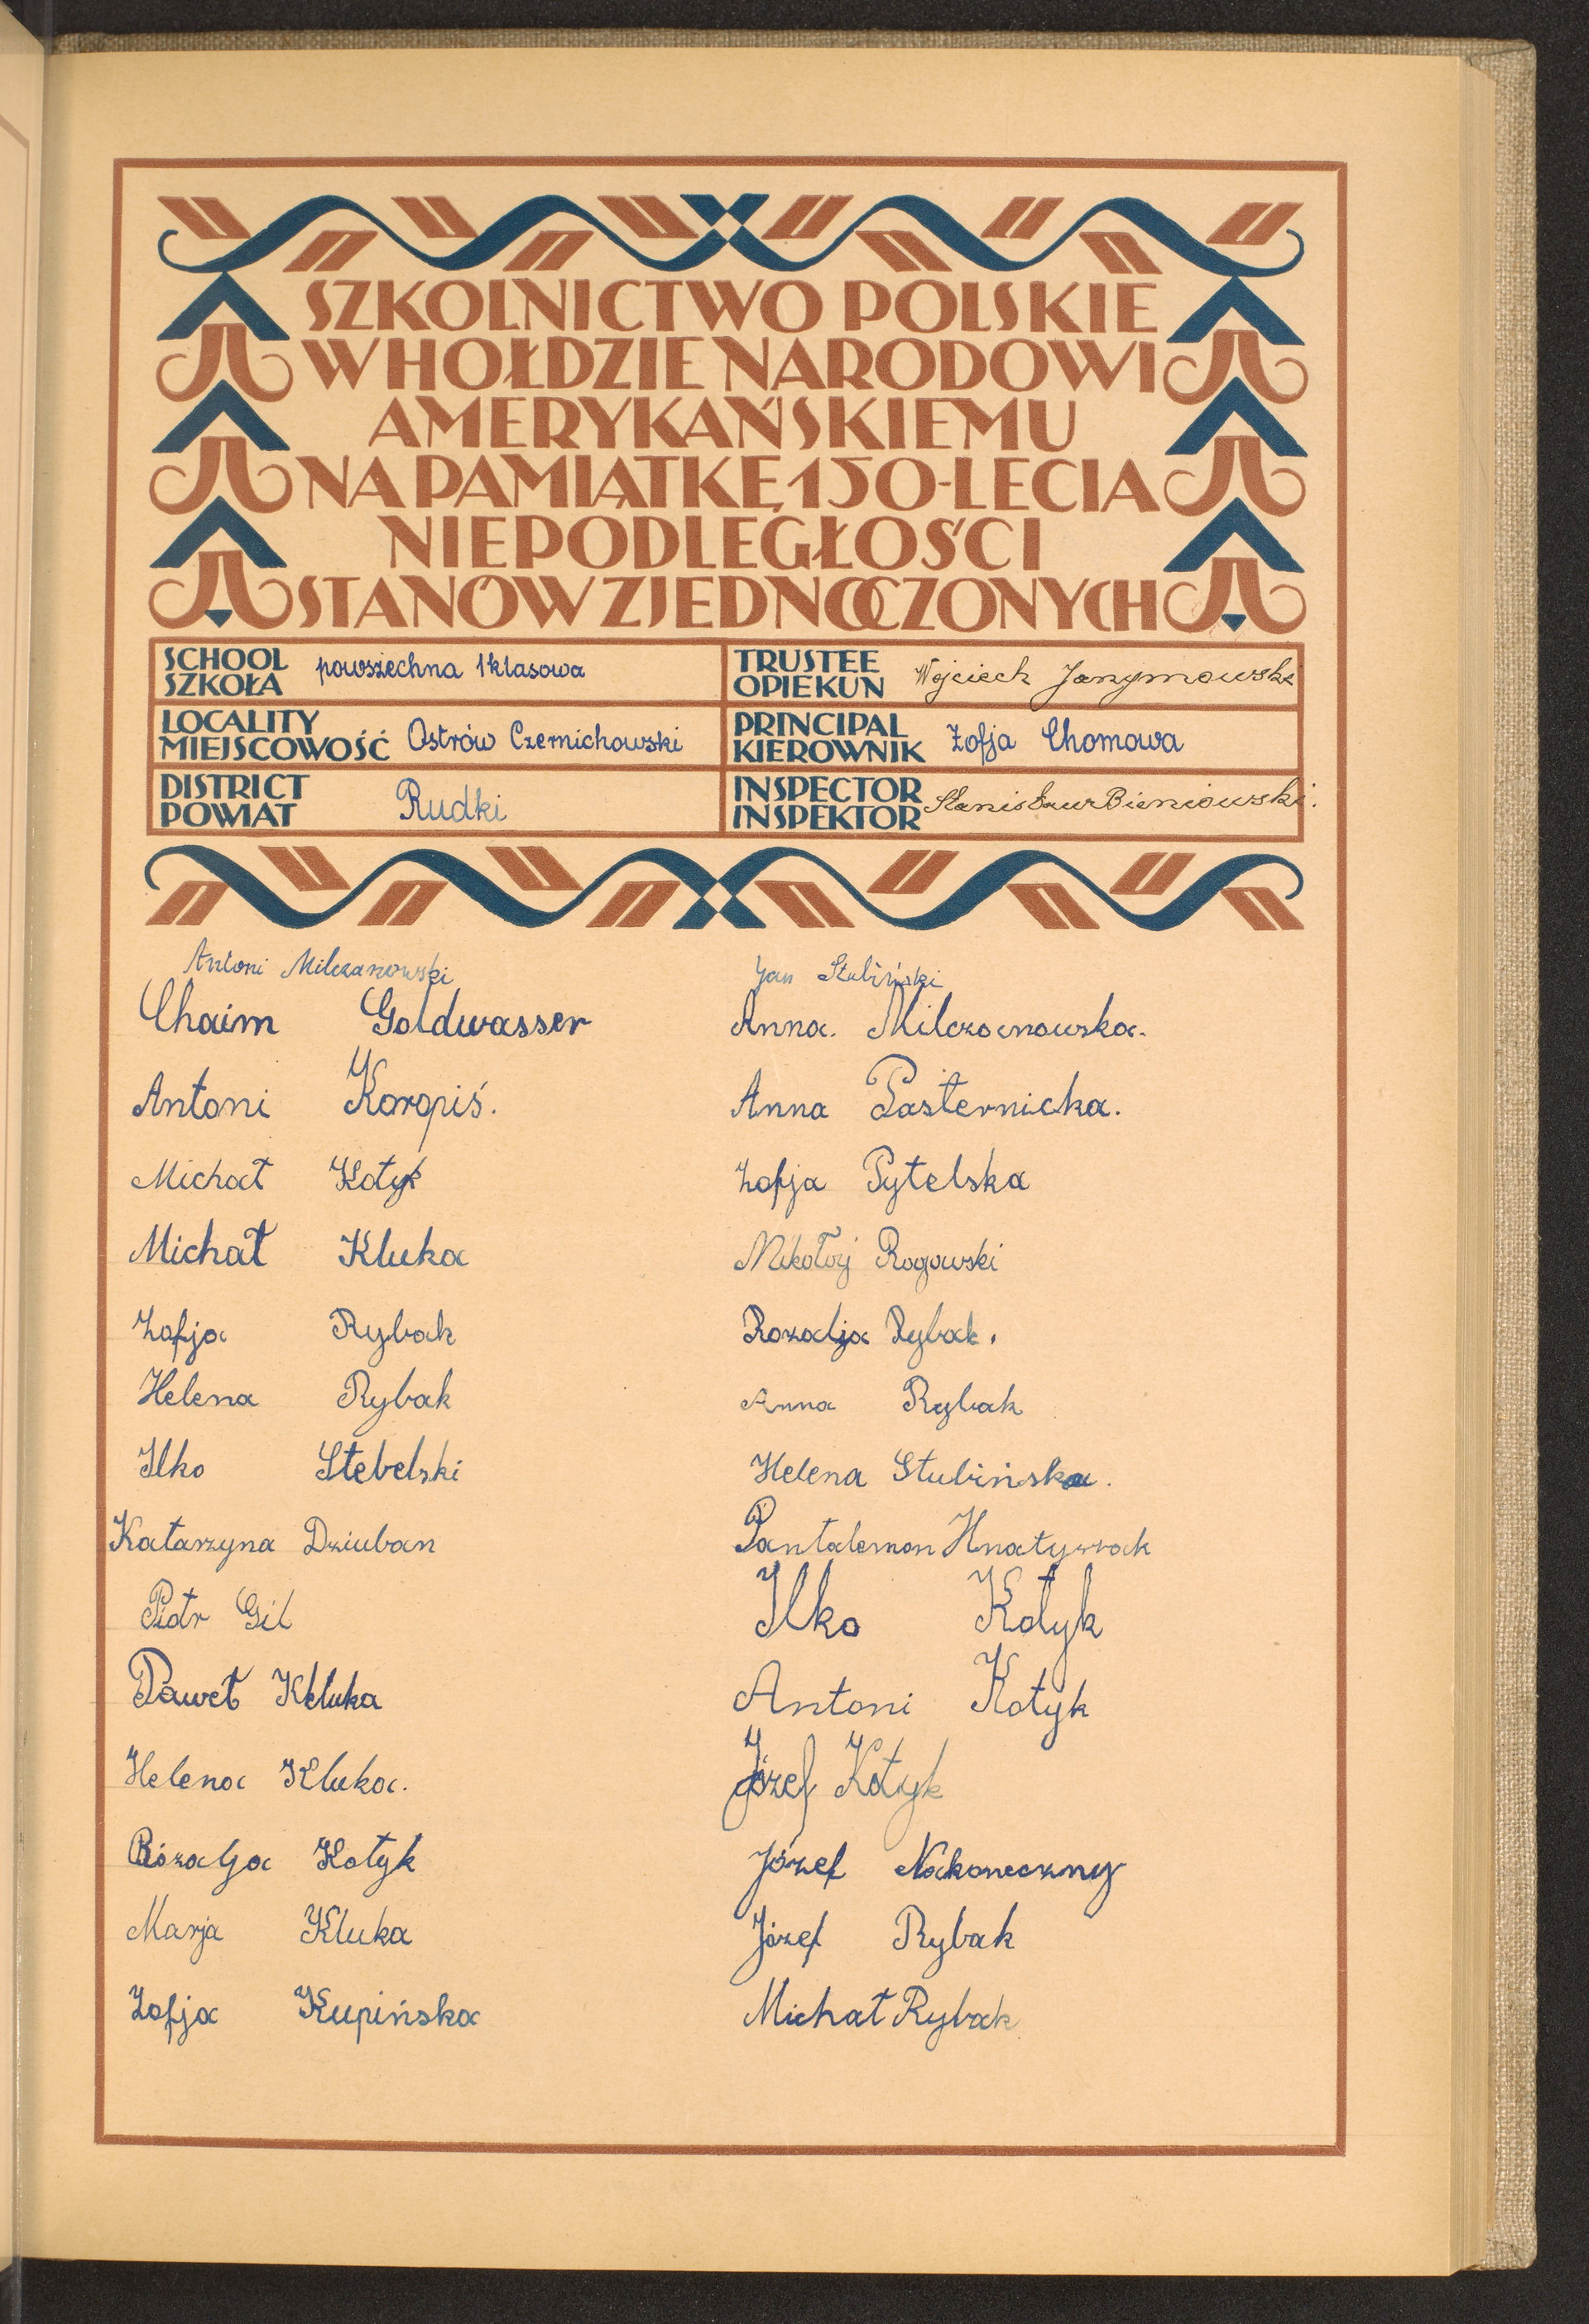 SZKOLNICTWO POLSKIE
W HOŁDZIE NARODOWI
AMERYKAŃSKIEMU
NA PAMIĄTKĘ 150-LECIA
NIEPODLEGŁOŚCI
STANÓW ZJEDNOCZONYCH
SCHOOL
SZKOŁA
powszechna 1klasowa
TRUSTEE
OPIEKUN
Wojciech
LOCALITY
MIEJSCOWOŚĆ
Ostrów Czernichowski
PRINCIPAL
KIEROWNIK
Zofja Chomowa
DISTRICT
POWIAT
Rudki
INSPECTOR
INSPEKTOR
Stanisław Bieniowski.
Antoni Milczanowski
Chaim Goldwasser
Antoni Koropiś.
Michał Kotyk
Michał Kluka
Zofja Rybak
Helena Rybak
Ilko Stebelski
Katarzyna Dziuban
Piotr Gil
Paweł Kluka
Helena Kluka.
Rozalja Kotyk
Marja Kluka
Zofja Kupińska
Jan Stubiński
Anna. Milczanowska.
Anna Pasternicka.
Zofja Pytelska
Mikołaj Rogowski
Rozalja Rybak.
Anna Rybak
Helena Stubińska.
Pantalemon
Ilko Kotyk
Antoni Kotyk
Józef Kotyk
Józef Nakoneczny
Józef Rybak
Michał Rybak